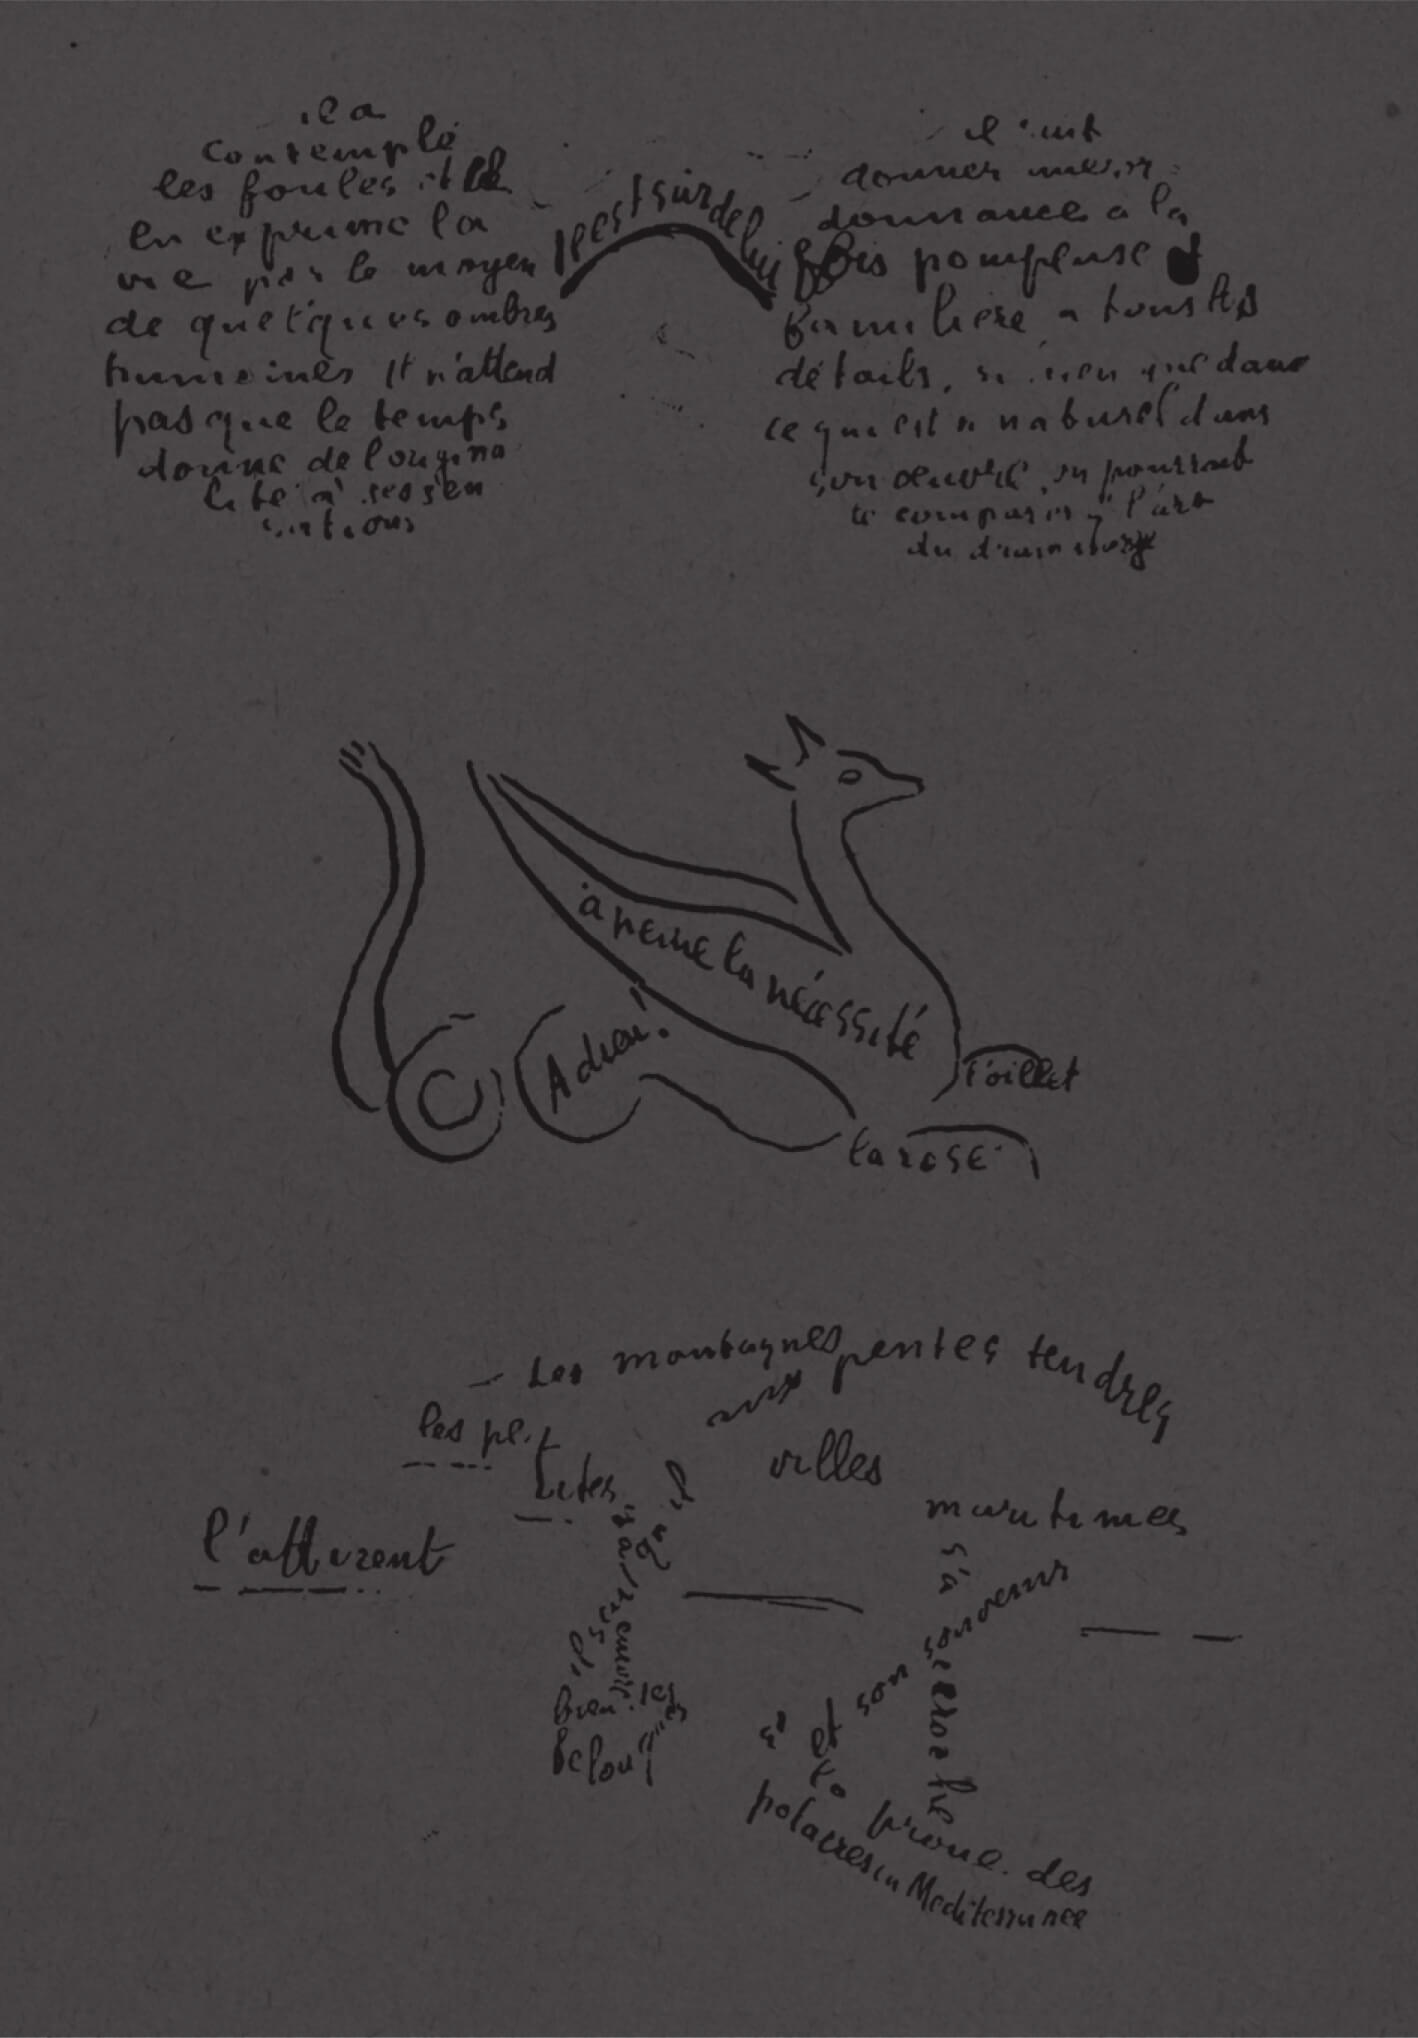 il a
contemplé
les foules et
en exprime la
vie par le moyen
de quelques ombres
humaines Il n'attend
pas que le temps
donne de l'origina
lité à ses sen
sations
Il est sûr de lui
il veut
donner une
à la
fois pompeuse et
familière a tous les
détails, si bien que dans
ce qui est si naturel dans
son œuvre, on pourrait
le comparer à l'art
du dramaturge
à peine la nécessité
Adieu!
l'œillet
la rose
Les montagnes aux pentes tendres
les pet
tites
villes
maritimes
l'attirent
s'a
et son souvenir
s'accroche
bien les
à la proue des
polacres en Mediterranee